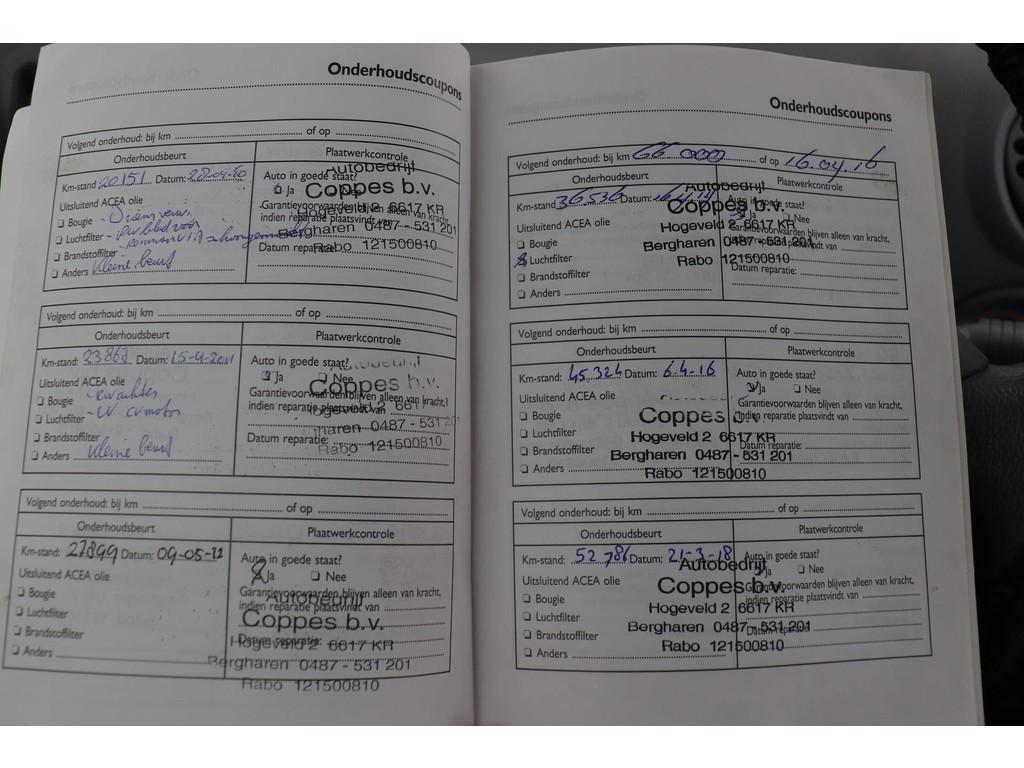 Onderhoudscoupons
Volgend onderhoud: bij km of op
Onderhoudsbeurt Plaatwerkcontrole
Km-stand 20151 Datum: 20-04-10 Auto in goede staat?
Uitsluitend ACEA olie Ja Nee
Bougie Garantievoorwaarden blijven alleen van kracht,
Luchtfilter indien reparatie plaatsvindt van
Brandstoffilter Datum reparatie:
Anders kleine beurt
Autobedrijf
Coppes b.v.
Hogeveld 2 6617 KR
Bergharen 0487 - 531 201
Rabo 121500810
Volgend onderhoud: bij km of op
Onderhoudsbeurt Plaatwerkcontrole
Km-stand: 23862 Datum: 15-4-2011 Auto in goede staat?
Uitsluitend ACEA olie Ja Nee
Bougie Garantievoorwaarden blijven alleen van kracht,
Luchtfilter indien reparatie plaatsvindt van
Brandstoffilter Datum reparatie:
Anders kleine beurt
Autobedrijf
Coppes b.v.
Hogeveld 2 6617
haren 0487 - 531 201
Rabo 121500810
Volgend onderhoud: bij km of op
Onderhoudsbeurt Plaatwerkcontrole
Km-stand: 27899 Datum: 09-05-12 Auto in goede staat?
Uitsluitend ACEA olie Ja Nee
Bougie Garantievoorwaarden blijven alleen van kracht,
Luchtfilter indien reparatie plaatsvindt van
Brandstoffilter Datum reparatie:
Anders
Autobedrijf
Coppes b.v.
Hogeveld 2 6617 KR
Bergharen 0487 - 531 201
Rabo 121500810
Onderhoudscoupons
Volgend onderhoud: bij km 66 000 of op 16.04.16
Onderhoudsbeurt Plaatwerkcontrole
Km-stand: 36536 Datum: Auto in goede staat?
Uitsluitend ACEA olie Ja Nee
Bougie Garantievoorwaarden blijven alleen van kracht,
Luchtfilter indien reparatie plaatsvindt van
Brandstoffilter Datum reparatie:
Anders
Autobedrijf
Coppes b.v.
Hogeveld 2 6617 KR
Bergharen 0487 - 531 201
Rabo 121500810
Volgend onderhoud: bij km of op
Onderhoudsbeurt Plaatwerkcontrole
Km-stand: 45.324 Datum: 6-4-16 Auto in goede staat?
Uitsluitend ACEA olie Ja Nee
Bougie Garantievoorwaarden blijven alleen van kracht,
Luchtfilter indien reparatie plaatsvindt van
Brandstoffilter Datum reparatie:
Anders
Coppes b.v.
Hogeveld 2 6617 KR
Bergharen 0487 - 531 201
Rabo 121500810
Volgend onderhoud: bij km of op
Onderhoudsbeurt Plaatwerkcontrole
Km-stand: 52.786 Datum: 21-3-18 Auto in goede staat?
Uitsluitend ACEA olie Ja Nee
Bougie Garantievoorwaarden blijven alleen van kracht,
Luchtfilter indien reparatie plaatsvindt van
Brandstoffilter Datum reparatie:
Anders
Autobedrijf
Coppes b.v.
Hogeveld 2 6617 KR
Bergharen 0487 - 531 201
Rabo 121500810